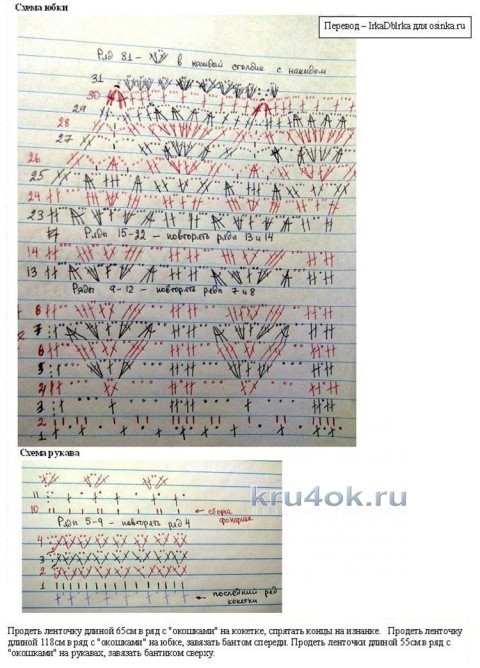 Схема юбки
Перевод – IrkaDbIrka для osinka.ru
Ряд 31 – в каждый столбик с накидом
31
30
29
28
27
26
25
24
23
Ряды 15-22 – повторять ряды 13 и 14
14
13
Ряды 9-12 – повторять ряды 7 и 8
8
7
6
5
4
3
2
1
Схема рукава
11
10
сборка фонарика
Ряды 5-9 – повторять ряд 4
4
3
2
1
последний ряд кокетки
kru4ok.ru
Продеть ленточку длиной 65см в ряд с "окошками" на кокетке, спрятать концы на изнанке. Продеть ленточку
длиной 118см в ряд с "окошками" на юбке, завязать бантом спереди. Продеть ленточки длиной 55см в ряд с
"окошками" на рукавах, завязать бантиком сверху.